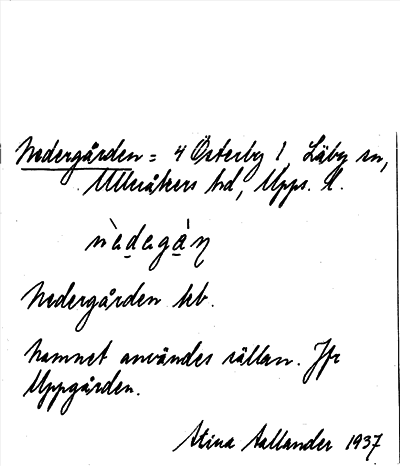 Nedergården = 4 Österby 1, Läby sn,
Ulleråkers hd, Upps. l.
nèdagáṇ
Nedergården hb.
Namnet användes sällan. Jfr
Uppgården.
Stina Aallander 1937